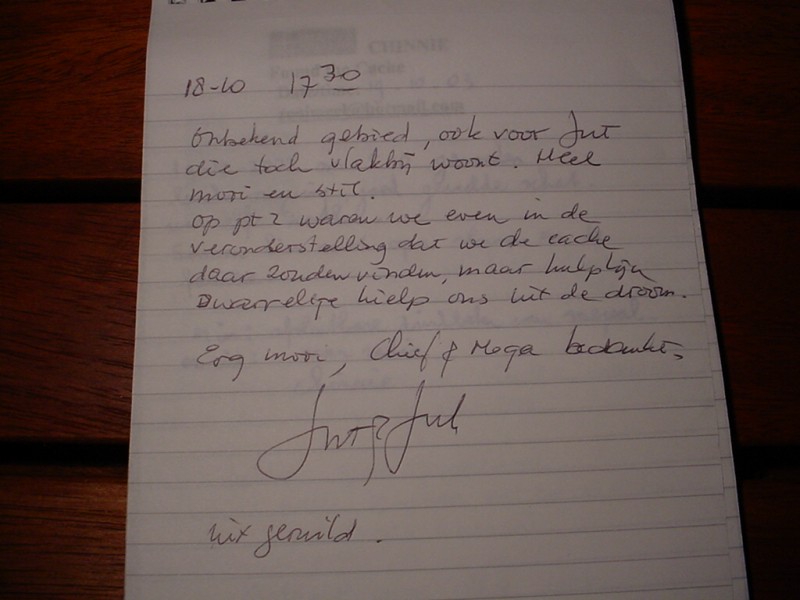 CHINNIE
18-10 17 30
Onbekend gebied, ook voor Jut
die toch vlakbij woont. Heel
mooi en stil.
Op pt 2 waren we even in de
veronderstelling dat we de cache
daar zouden vinden, maar hulplijn
Dwarreltje hielp ons uit de droom.
Erg mooi, Chief & Moga bedankt,
Jut & Jul
nix geruild.